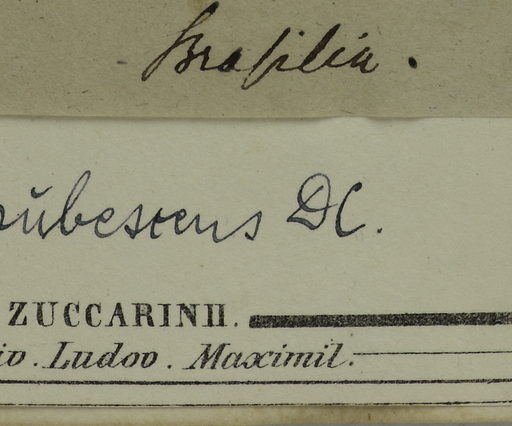 Brasilia.
rubescens DC.
ZUCCARINII.
iv. Ludov. Maximil.